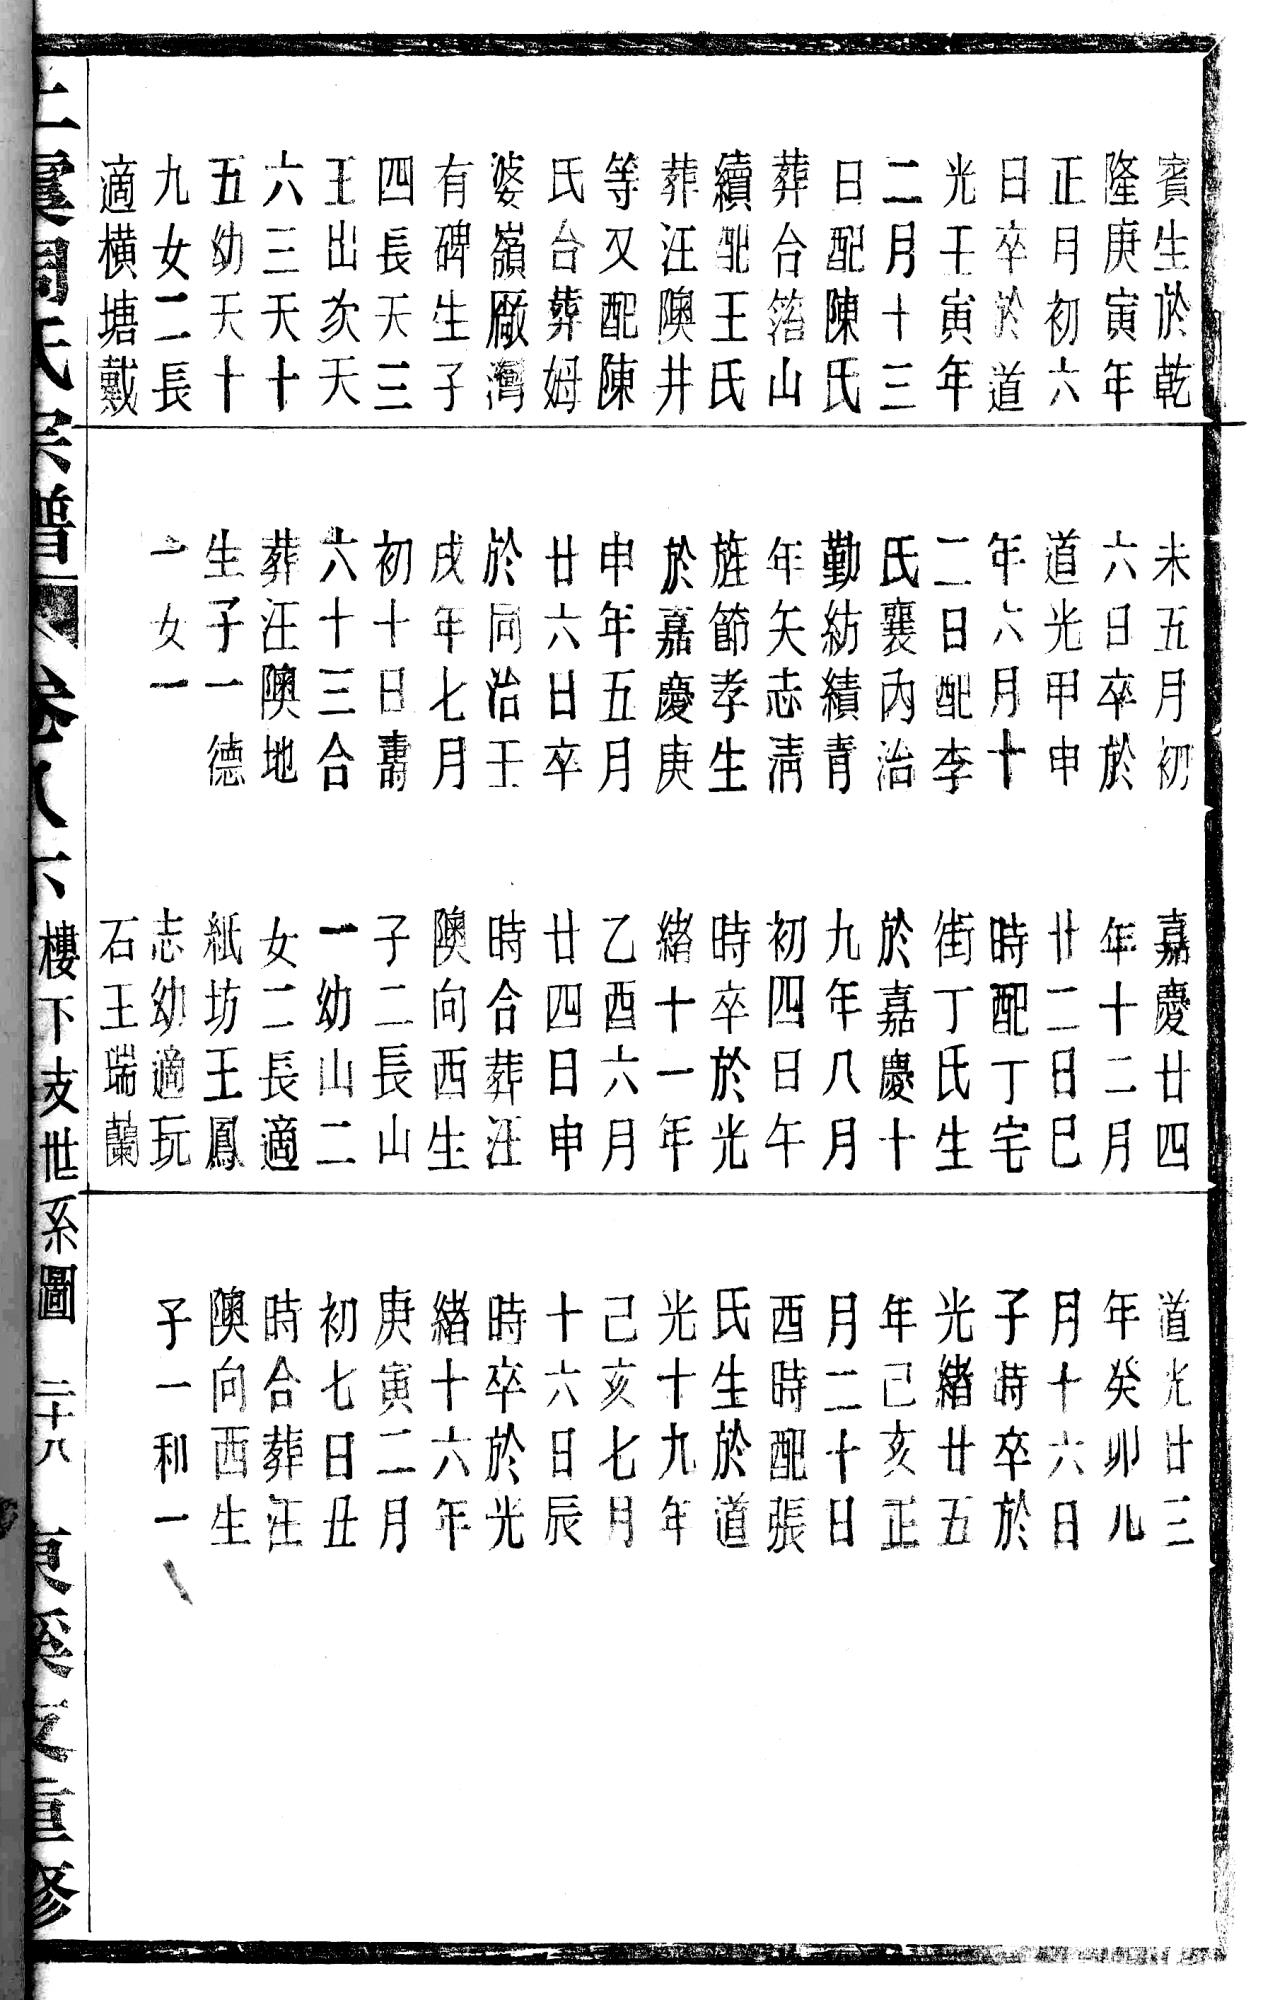 賓生於乾
隆庚寅年
正月初六
日卒於道
光壬寅年
二月十三
日配陳氏
葬台箈山
續配王氏
葬汪隩井
等又配陳
氏台葬姆
婆嶺厰灣
有碑生子
四長天三
王出次天
六三天十
五幼天十
九女二長
適橫塘戴
未五月初
六日卒於
道光甲申
年六月十
二日配李
氏襄內治
勤紡績青
年矢志淸
旌節孝生
於嘉慶庚
申年五月
廿六日卒
於同治壬
戌年七月
初十日壽
六十三合
葬汪隩地
生子一德
一女一
嘉慶廿四
年十二月
廿二日巳
時配丁宅
街丁氏生
於嘉慶十
九年八月
初四日午
時卒於光
緒十一年
乙酉六月
廿四日申
時合葬汪
隩向西生
子二長山
一幼山二
女二長適
紙坊王鳳
志幼適玩
石王瑞蘭
道光廿三
年癸卯九
月十六日
子時卒於
光緒廿五
年己亥正
月二十日
酉時配張
氏生於道
光十九年
己亥七月
十六日辰
時卒於光
緒十六年
庚寅二月
初七日丑
時合葬汪
隩向西生
子一和一
上虞周氏宗譜 卷八下 樓下支世系圖 二十八 東溪支重修